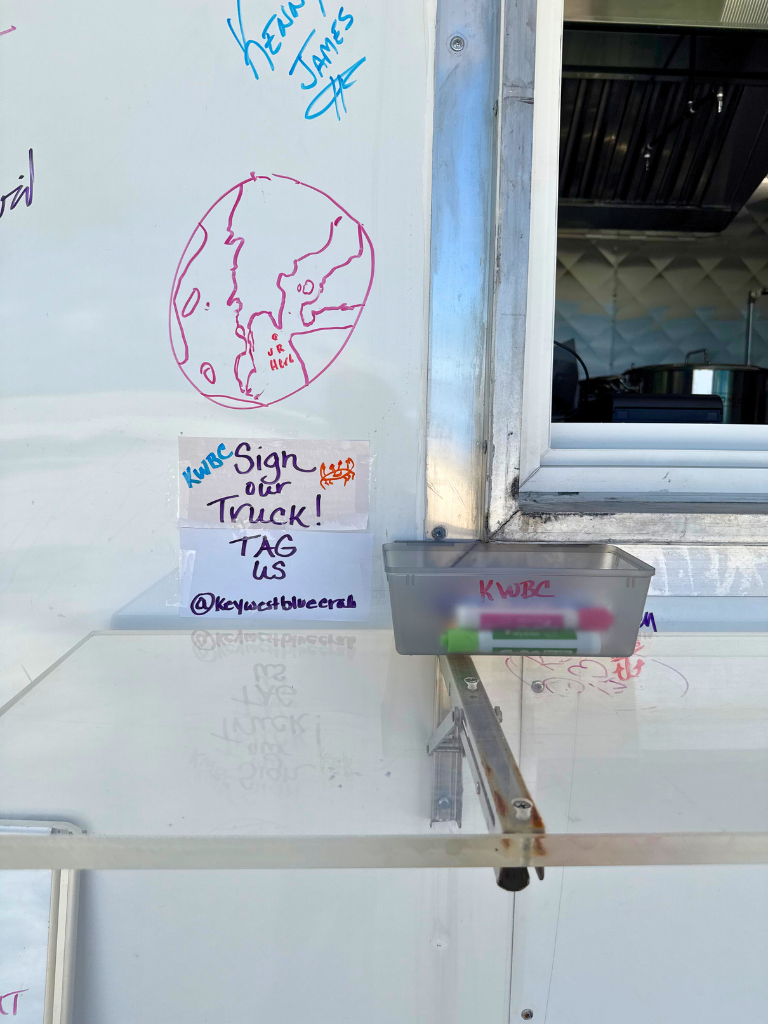 KENNY
JAMES
U R
Here
KWBC Sign
our
Truck!
TAG
US
@Keywestbluecrab
KWBC